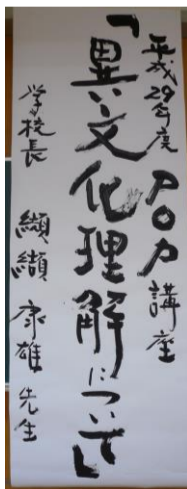 平成29年度 POP講座
「異文化理解について」
学校長 纐纈 康雄 先生